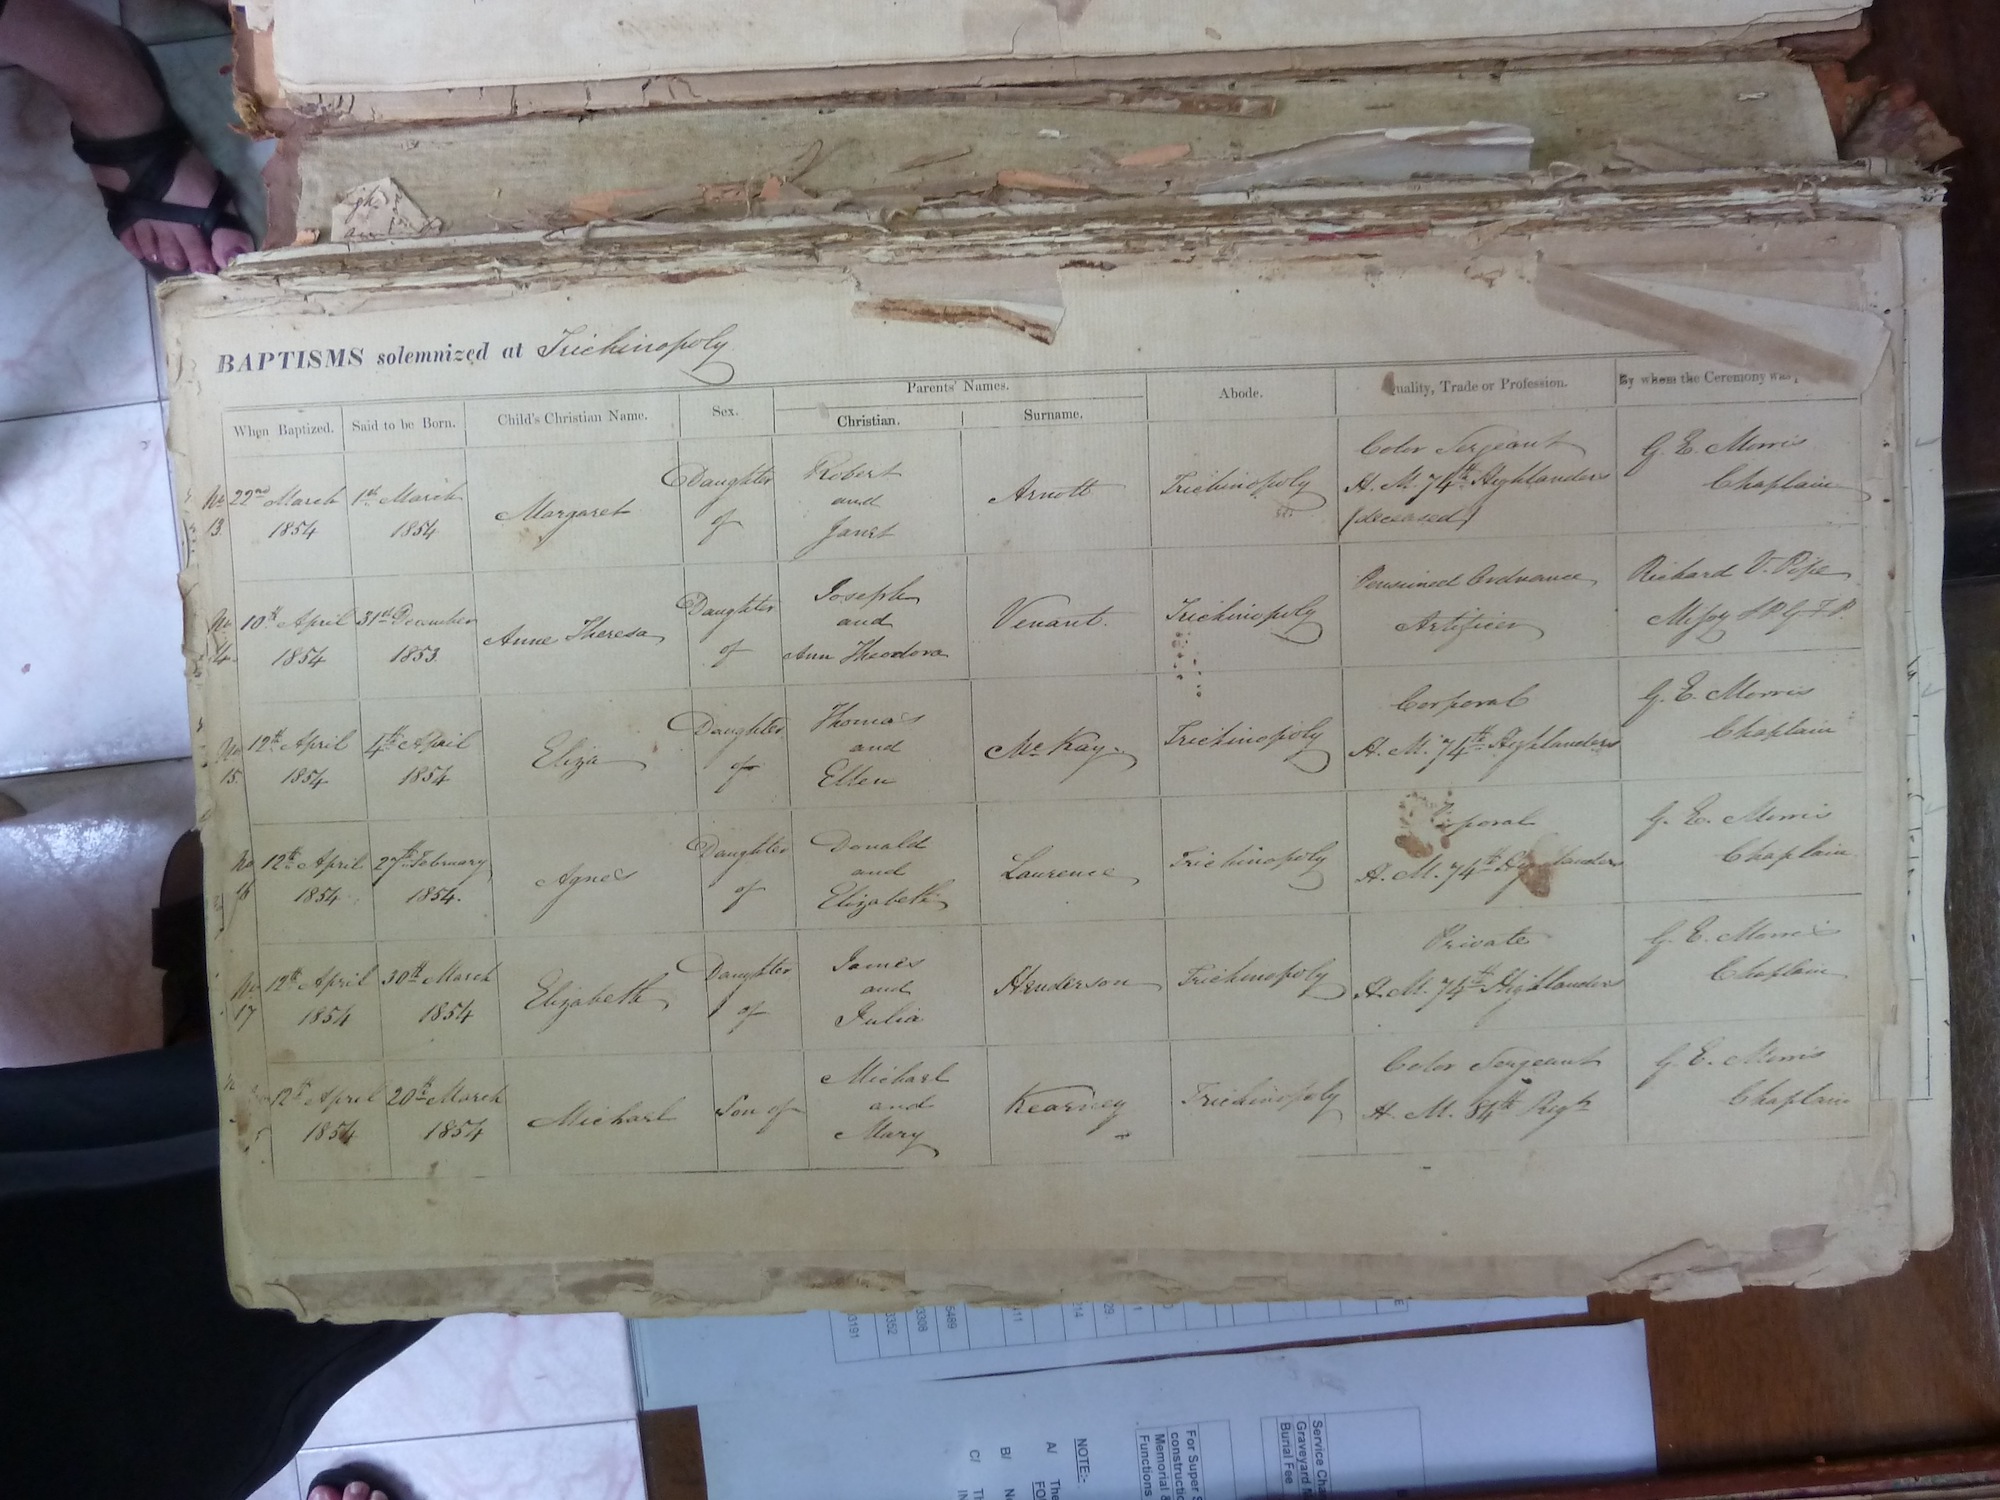 BAPTISMS solemnized at Trichinopoly
When Baptized. Said to be Born. Child's Christian Name. Sex. Parents' Names. Christian. Surname. Abode. Quality, Trade or Profession. By whom the Ceremony was
No 13 22nd March 1854 1st March 1854 Margaret Daughter of Robert and Janet Arnott Trichinopoly Color Sergeant H. M. 74th Highlanders (deceased) G. E. Morris Chaplain
No 14 10th April 1854 31st December 1853. Anne Theresa Daughter of Joseph and Ann Theodora Venant. Trichinopoly Pensioned Ordnance Artificer Richard V. Pope Missy S P G F P.
No 15 12th April 1854 4th April 1854 Eliza Daughter of Thomas and Ellen McKay. Trichinopoly Corporal H. M. 74th Highlanders G. E. Morris Chaplain
No 16 12th April 1854 27th February 1854. Agnes Daughter of Donald and Elizabeth Laurence Trichinopoly Corporal H. M. 74th Highlanders G. E. Morris Chaplain
No 17 12th April 1854 30th March 1854 Elizabeth Daughter of James and Julia Henderson Trichinopoly Private H. M. 74th Highlanders G. E. Morris Chaplain
12th April 1854 20th March 1854 Michael Son of Michael and Mary Kearney Trichinopoly Color Sergeant H. M. 84th Regt G. E. Morris Chaplain
3191
3352
3308
5489
411
214
029.
NOTE:-
A/ The
B/
C/
For Super S
constructio
Memorial &
Functions
Service Cha
Graveyard M
Burial Fee